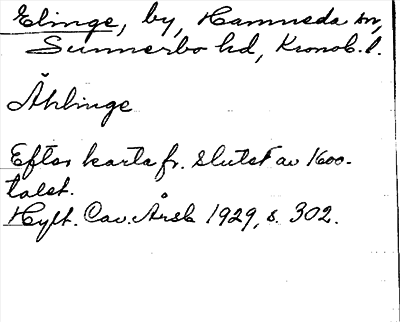 Elinge, by, Hamneda sn,
Sunnerbo hd, Kronob. l.
Åhlinge
Efter karta fr. slutet av 1600-
talet.
Hylt. Cav. Årsb 1929, s. 302.